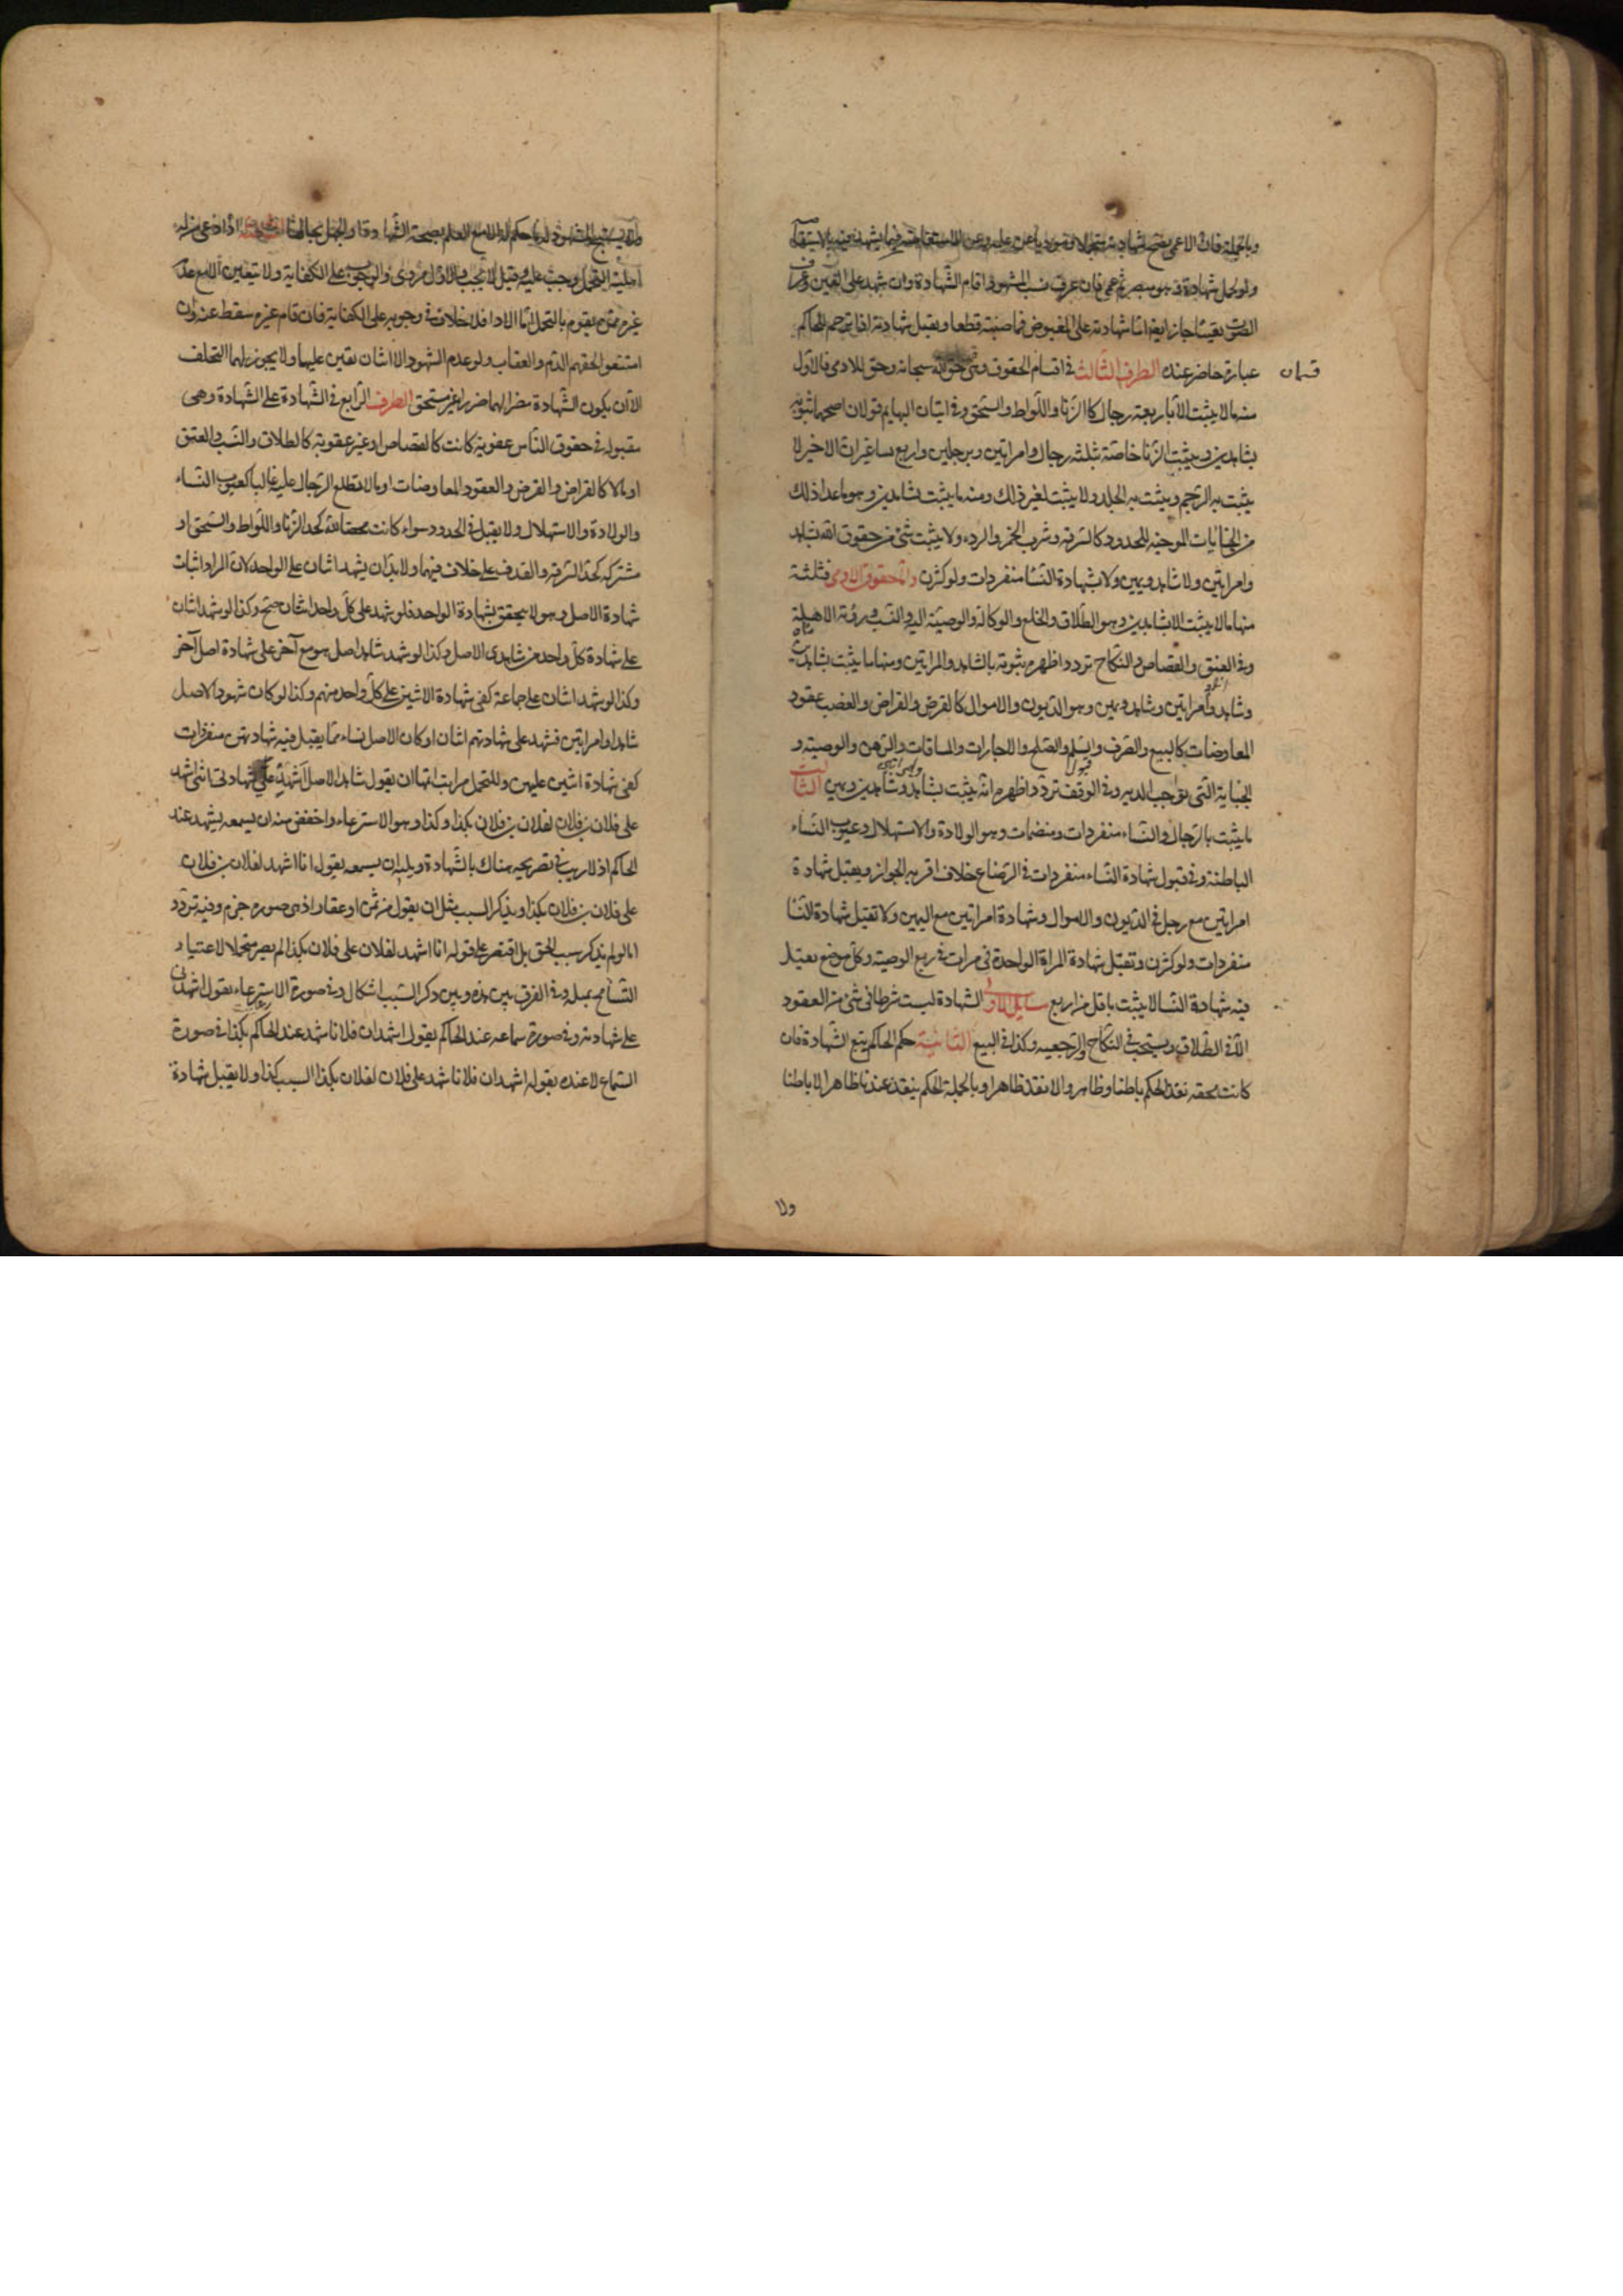 وبالجملة فان الاعمى يصح شهادته متحملا ومؤديا عن علمه وعن الاستفاضة فيما يشهد فيه بالاستفاضة
ولو تحمل شهادة وهو مبصر ثم عمى فان عرف نسب المشهود اقام الشهادة وان شهد على العين وعرف
الصوت يقينا جاز ايضا اما شهادته على المقبوض فماضية قطعا ويقبل شهادته اذا ترجم للحاكم
عبارة حاضر عنده الطرف الثالث فى اقسام الحقوق وهى حق الله سبحانه وحق للادمى فالاول
قسمان
منه ما لا يثبت الا باربعة رجال كالزنا واللواط والسحق وفى اتيان البهايم قولان اصحهما ثبوته
بشاهدين ويثبت الزنا خاصة بثلثه رجال وامراتين وبرجلين واربع نسا غير ان الاخير لا
يثبت به الرجم ويثبت به الجلد ولا يثبت بغير ذلك ومنه ما يثبت بشاهدين وهو ما عدا ذلك
من الجنايات الموجبه للحدود كالسرقه وشرب الخمر والرده ولا يثبت شئ من حقوق الله بشاهد
وامراتين ولا شاهد ويمين ولا بشهادة النسا منفردات ولو كثرن واما حقوق الادمى فثلثة
منها ما لا يثبت الا بشاهدين وهو الطلاق والخلع والوكالة والوصية اليه والنسب وروية الاهلة
وفى العتق والقصاص والنكاح تردد اظهره ثبوته بالشاهد والمراتين ومنها ما يثبت بشاهدين
وشاهد وامراتين وشاهد ويمين وهو الديون والاموال كالقرض والقراض والغصب وعقود
المعاوضات كالبيع والصرف والسلم والصلح والاجارات والمساقات والرهن والوصيته و
الجناية التى توجب الديه وفى الوقف تردد اظهره انه يثبت بشاهد وشاهدين ويمين الثالث
ما يثبت بالرجال والنساء منفردات ومنضمات وهو الولادة والاستهلال وعيوب النساء
الباطنة وفى قبول شهادة النساء منفردات فى الرضاع خلاف اقربه الجواز ويقبل شهادة
امراتين مع رجل فى الديون والاموال وشهادة امراتين مع اليمين ولا تقبل شهادة النسا
منفردات ولو كثرن وتقبل شهادة المراة الواحدة فى ميراث فى ربع الوصيته وكل موضع يقبل
فيه شهادة النسا لا يثبت باقل من اربع مسايل الاولى الشهادة ليست شرطا فى شئ من العقود
الا فى الطلاق ويستحب فى النكاح والرجعيه وكذا فى البيع الثانية حكم الحاكم يتبع الشهادة فان
كانت محقه نفذ الحكم باطنا وظاهرا والا نفذ ظاهرا وبالجملة الحكم ينفذ عندنا ظاهرا لا باطنا
ولا
اهلية التحمل وجب عليه وقيل لا يجب والاول مروى والوجوب على الكفاية ولا يتعين الا مع عدم
غيره ممن يقوم بالتحمل اما الادا فلا خلاف فى وجوبه على الكفاية فان قام غيره سقط عنه وان
امتنعوا لحقهم الذم والعقاب ولو عدم الشهود الا اثنان تعين عليهما ولا يجوز لهما التخلف
الا ان يكون الشهادة مضرا لهما ضررا غير مستحق الطرف الرابع فى الشهادة على الشهادة وهى
مقبوله فى حقوق الناس عقوبة كانت كالقصاص او غير عقوبة كالطلاق والنسب والعتق
او مالا كالقراض والقرض والعقود المعاوضات او ما لا تطلع الرجال عليه غالبا كعيوب النساء
والولادة والاستهلال ولا يقبل فى الحدود سواء كانت محضا لله كحد الزنا واللواط والسحق او
مشتركه كحد السرقه والقذف على خلاف فيهما ولا بد ان يشهد اثنان على الواحد لان المراد اثبات
شهادة الاصل وهو لا يتحقق بشهادة الواحد فلو شهد على كل واحد اثنان صح وكذا لو شهد اثنان
على شهادة كل واحد من شاهدى الاصل وكذا لو شهد شاهد اصل هو مع آخر على شهادة اصل آخر
وكذا لو شهد اثنان على جماعة كفى شهادة الاثنين على كل واحد منهم وكذا لو كان شهود الاصل
شاهدا وامراتين فشهد على شهادتهم اثنان او كان الاصل نساء مما يقبل فيه شهادتهن منفردات
كفى شهادة اثنين عليهن وللتحمل مراتب اتمها ان يقول شاهد الاصل اشهد على شهادتى اننى اشهد
على فلان بن فلان لفلان بن فلان بكذا وكذا وهو الاسترعاء واخفض منه ان يسمعه يشهد عند
الحاكم اذ لا ريب فى تصريحه هناك بالشهادة ويليه ان يسمعه يقول انا اشهد لفلان بن فلان
على فلان بن فلان بكذا ويذكر السبب مثل ان يقول من ثمن او عقار اذ هى صوره جزم وفيه تردد
اما لو لم يذكر سبب الحق بل اقتصر على قوله انا اشهد لفلان على فلان بكذا لم يصر متحملا لاعتياد
التسامح بمثله وفى الفرق بين هذه وبين ذكر السبب اشكال وفى صورة الاسترعاء يقول اشهدنى
على شهادته وفى صورة سماعه عند الحاكم يقول اشهد ان فلانا شهد عند الحاكم بكذا وفى صورة
السماع لا عنده يقول اشهد ان فلانا شهد على فلان لفلان بكذا السبب كذا ولا يقبل شهادة